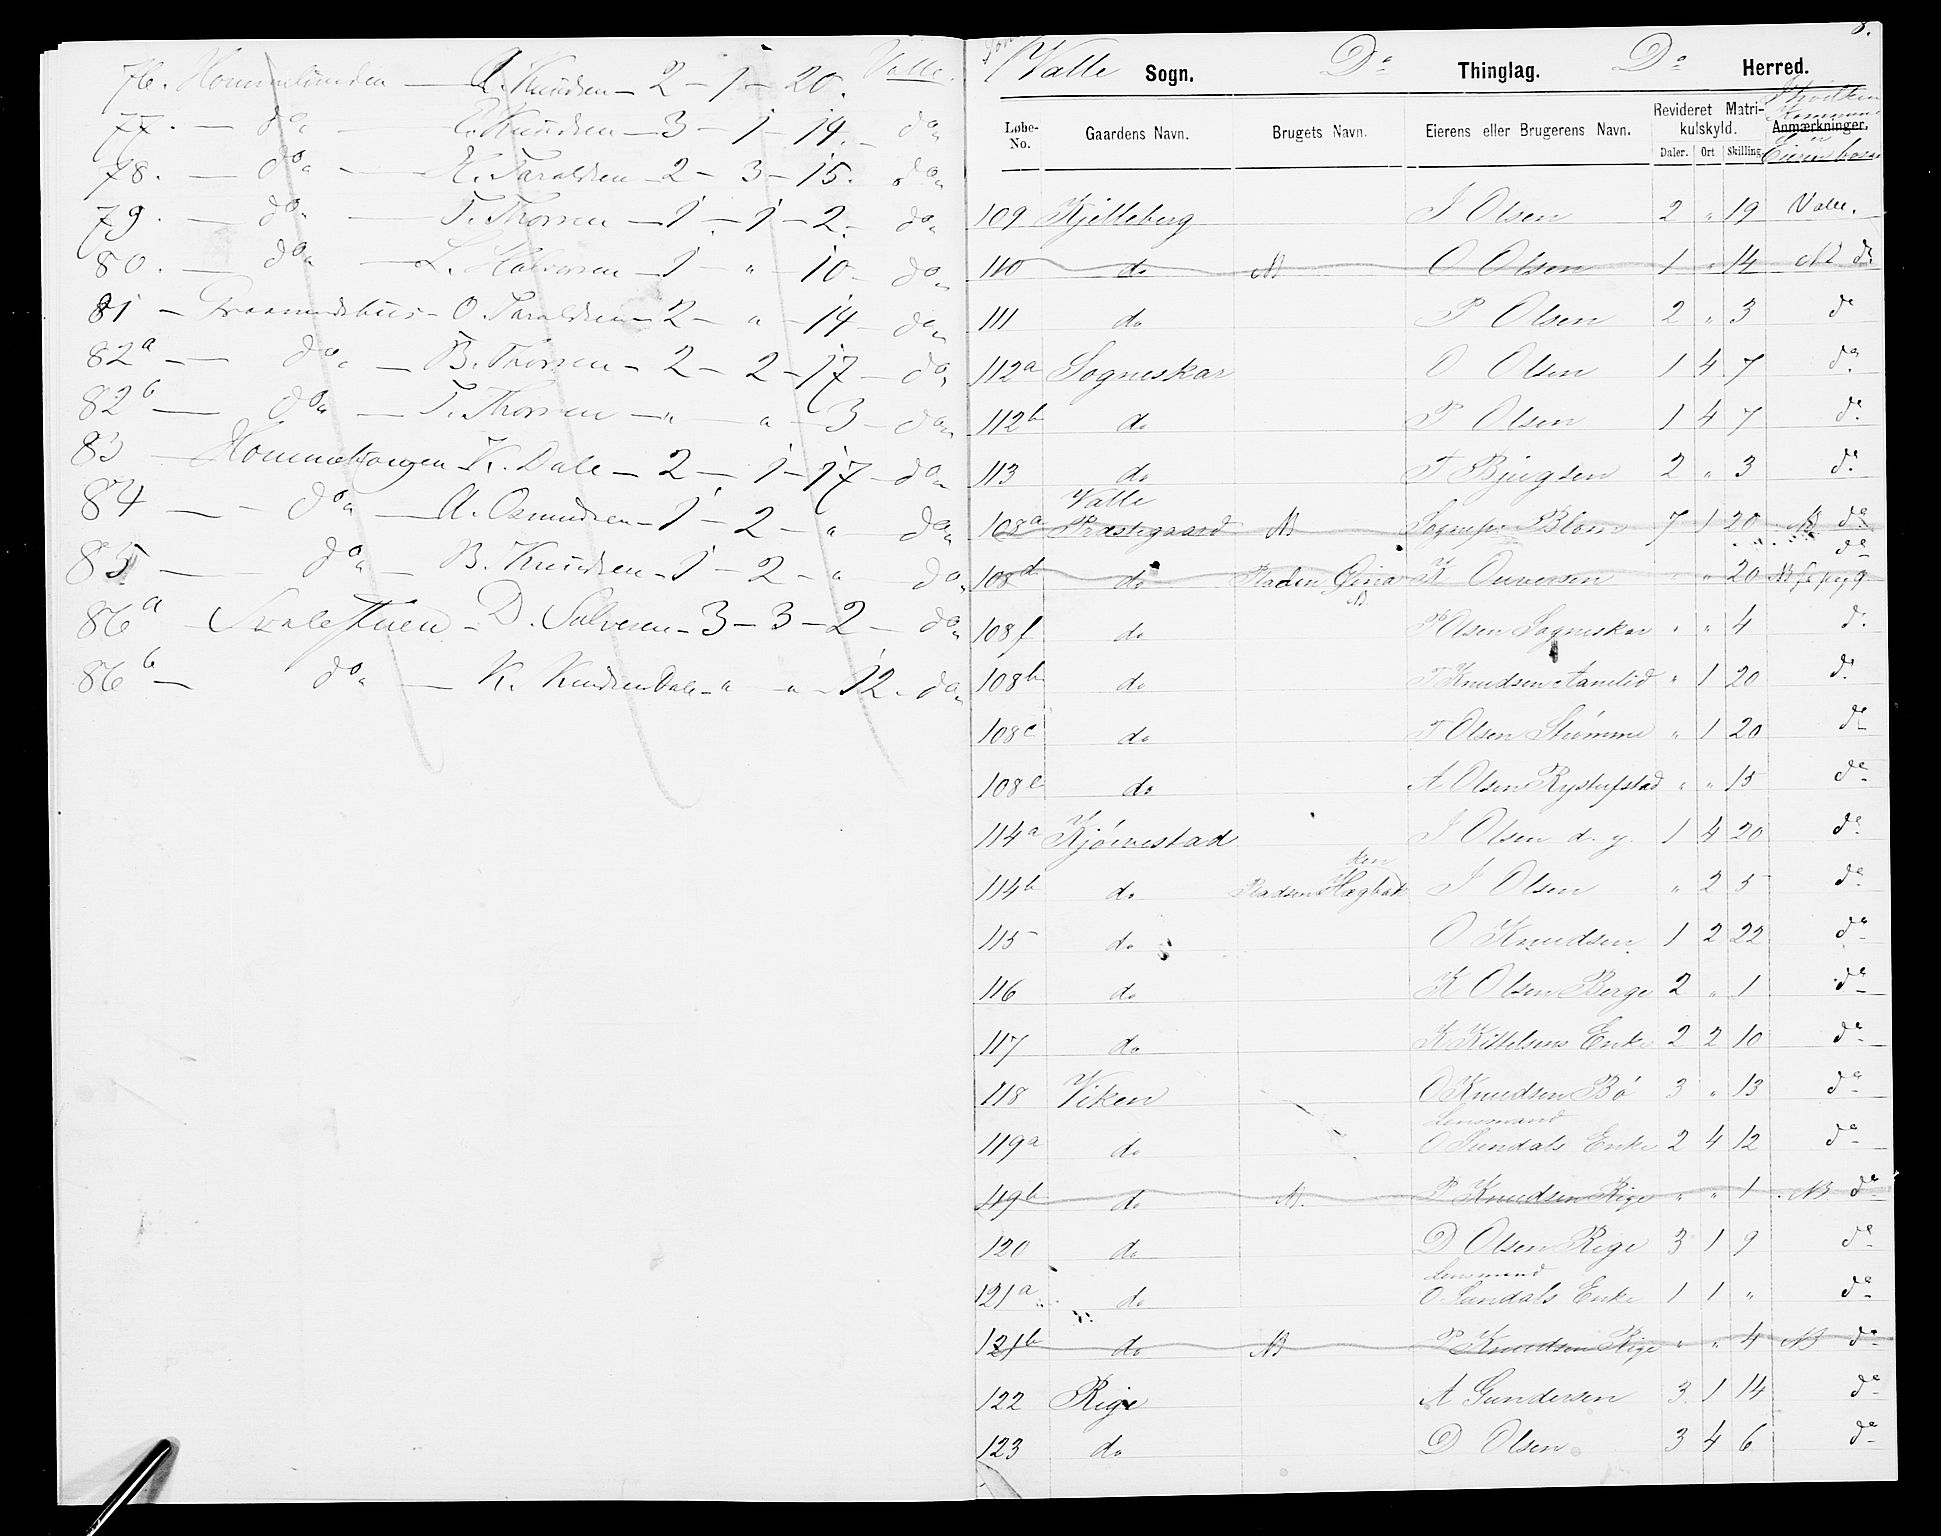 Valle.
76. Hommelunden — A. Knudsen — 2 — 1 — 20.
77. — do — E. Knudsen — 3 — 1 — 14. — do
78. — do — K. Taraldsen — 2 — 3 — 15. do
79. — do — T. Thorsen — 1 — 1 — 2. — do
80. — do — L. Halvorsen — 1 — " — 10 — do
81 — O. Taraldsen — 2 — " — 14 — do
82a — do — B. Thorsen — 2 — 2 — 17 — do
82b — do — T. Thorsen — " — " — 3 — do
83 — K. Dale — 2 — 1 — 17 — do
84 — do — A. Osmundsen — 1 — 2 — " — do
85 — do — B. Knudsen — 1 — 2 — " — do
86a — D. Salvesen — 3 — 3 — 2 — do
86b — do — K. Knudsen Dale — " — " — 12 — do
8.
Valle Sogn. Do Thinglag. Do Herred.
Løbe-No. Gaardens Navn. Brugets Navn. Eierens eller Brugerens Navn. Revideret Matrikulskyld. Daler. Ort. Skilling. Anmærkninger. I hvilken Kommune Eieren bor
109 Kjelleberg J Olsen 2 " 19 Valle.
110 do NB O Olsen 1 " 14 NB do
111 do P Olsen 2 " 3 do
112a Sogneskar O Olsen 1 4 7 do
112b do P Olsen 1 4 7 do
113 do T Bjugsen 2 " 3 do
108a Valle Præstegaard NB Sognepr Blom 7 1 20 NB do
108d do Pladsen K Gunversen " " 20 NB do
108f do P Olsen Sogneskar " " 4 do
108b do T Knudsen Aamlid " 1 20 do
108c do T Olsen Strømme " 1 20 do
108e do A Olsen Rystefstad " " 15 do
114a Kjørvestad J Olsen d. y. 1 4 20 do
114b do Pladsen J Olsen " 2 5 do
115 do O Knudsen 1 2 22 do
116 do K Olsen Berge 2 " 1 do
117 do K Kittelsens Enke 2 2 10 do
118 Viken O Knudsen Bø 3 " 13 do
119a do Lensmand O Sundals Enke 2 4 12 do
119b do NB. P Knudsen Rige " " 1 NB do
120 do D Olsen Rige 3 1 9 do
121a do Lensmand O Sundals Enke 1 1 " do
121b do NB P Knudsen Rige " " 4 NB do
122 Rige A Gundersen 3 1 14 do
123 do D Olsen 3 4 6 do